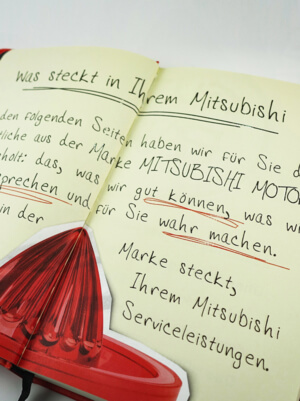 Was steckt in Ihrem Mitsubishi
den folgenden Seiten haben wir für Sie d
tliche aus der Marke MITSUBISHI MOTO
holt: das, was wir gut können, was wi
sprechen und für Sie wahr machen.
in der
Marke steckt,
Ihrem Mitsubishi
Serviceleistungen.